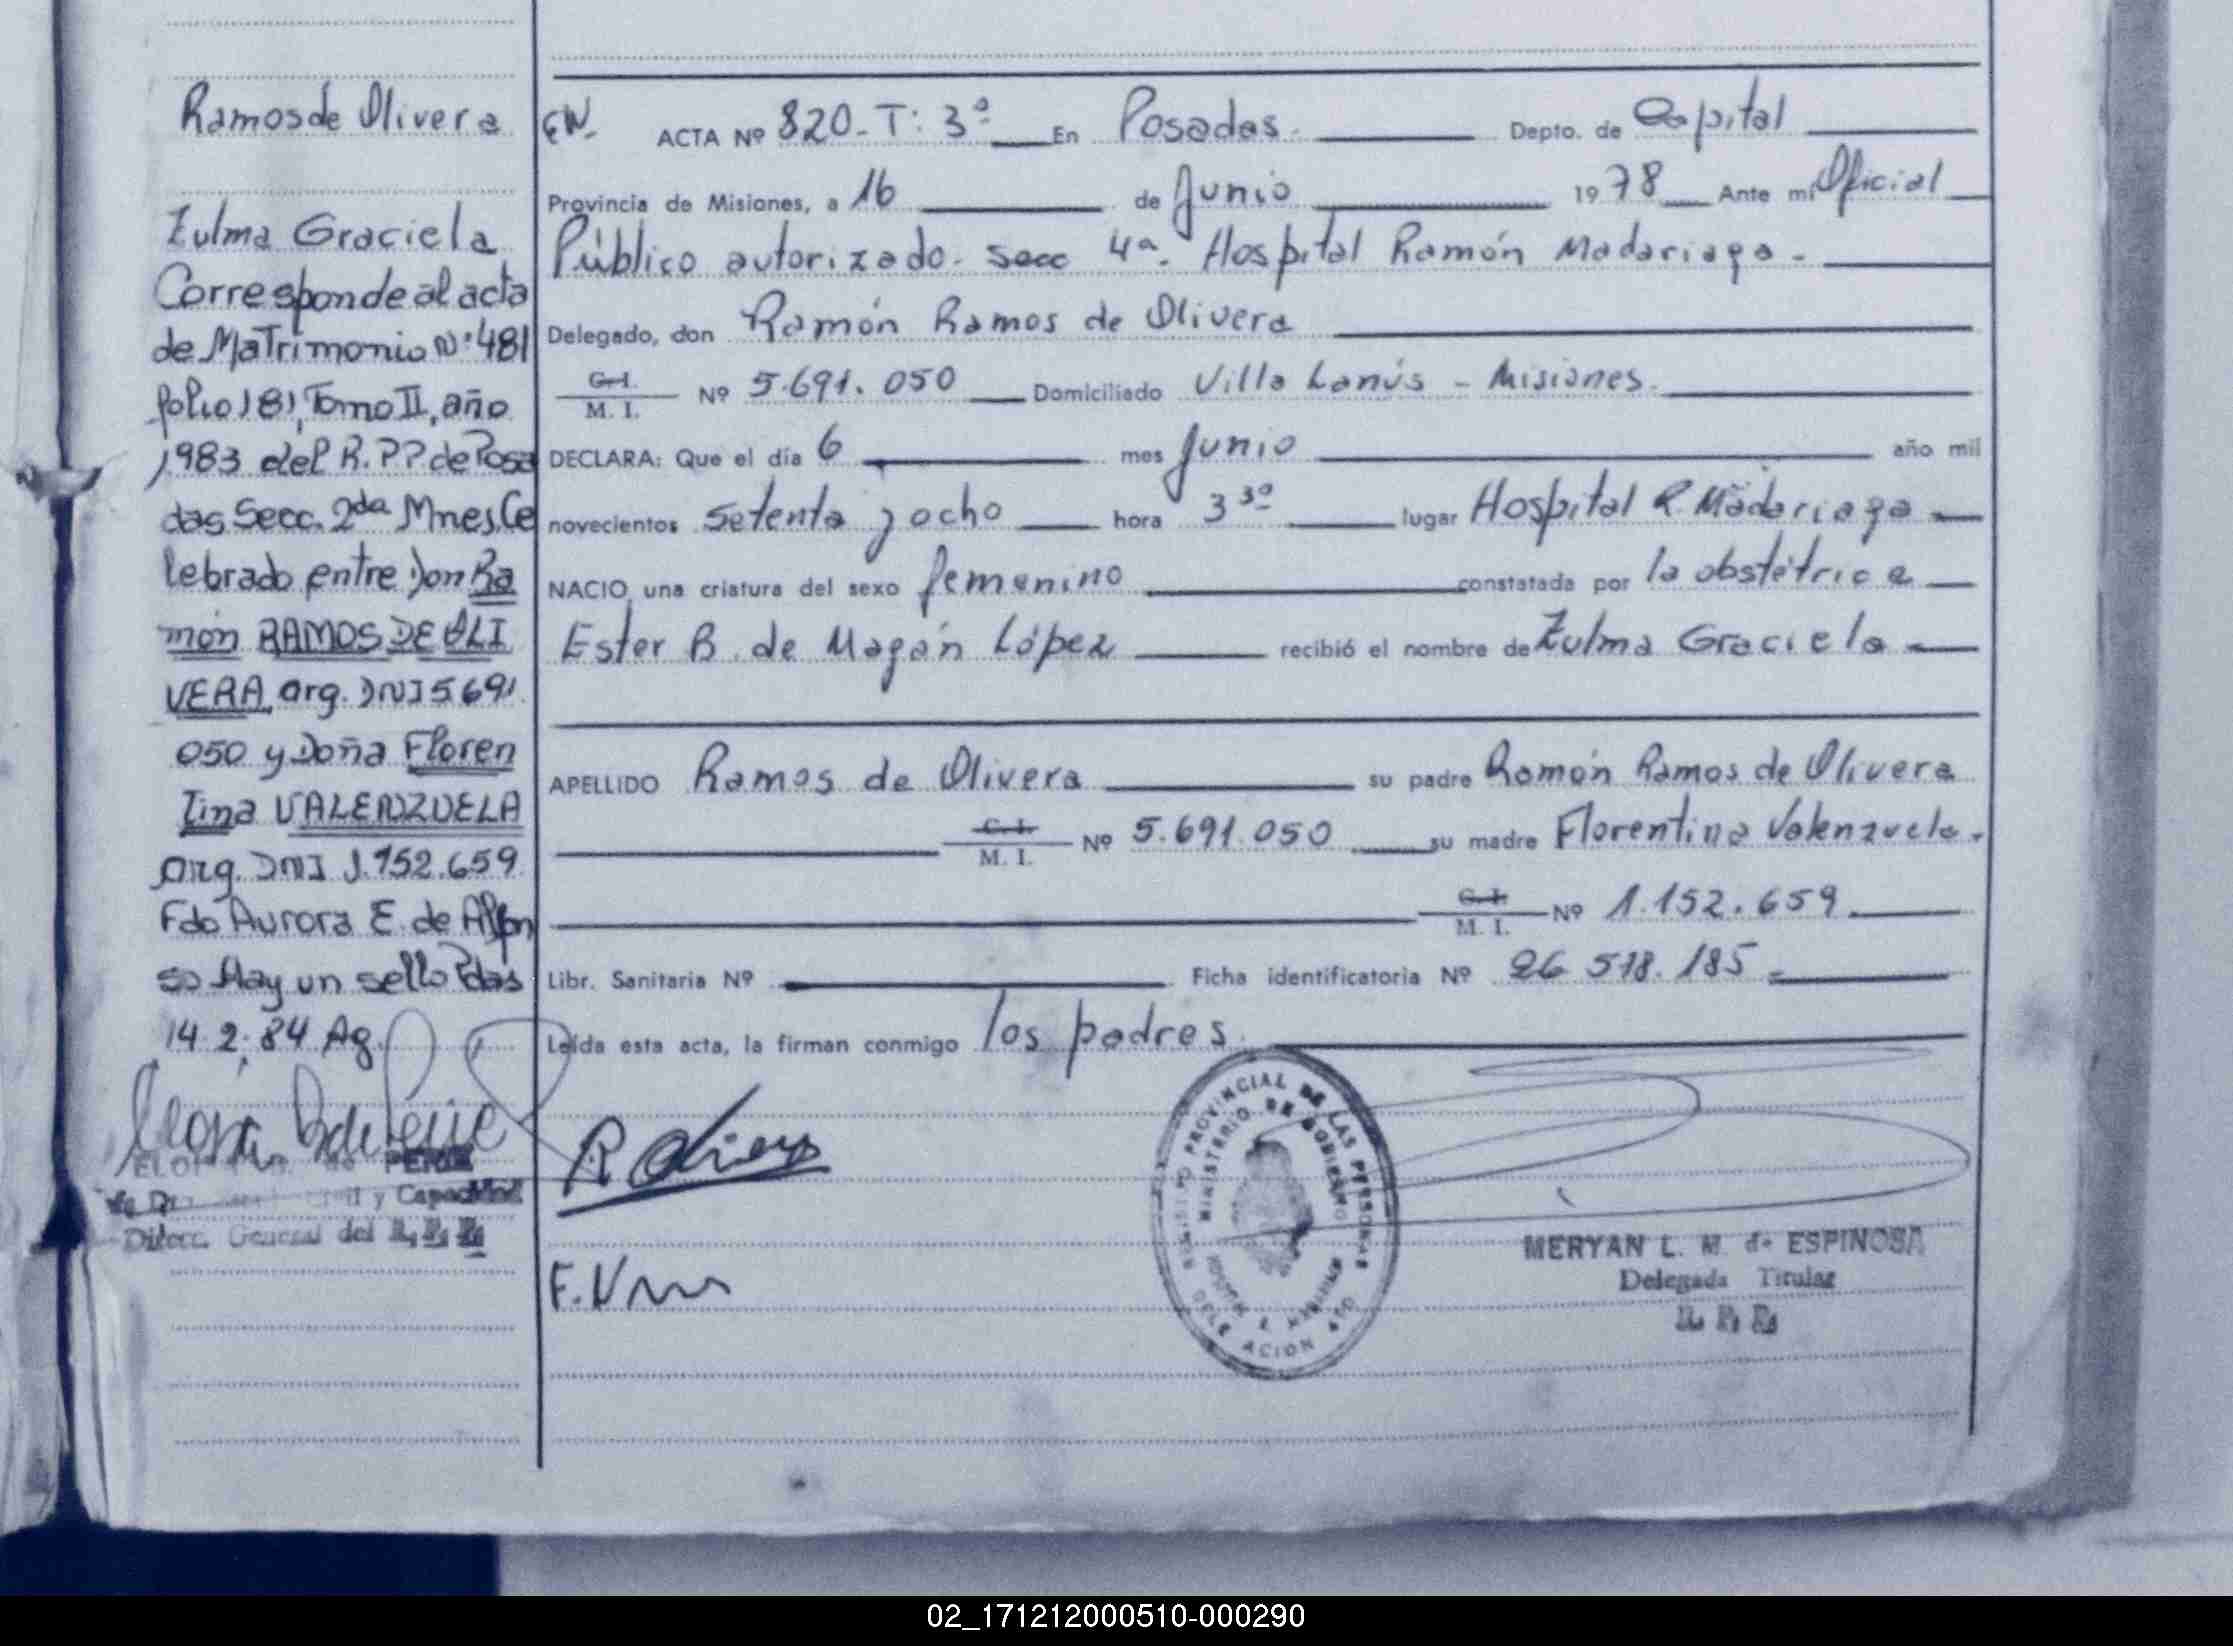 Ramos de Olivera
Zulma Graciela
Corresponde al acta
de Matrimonio Nº 481
folio 181, Tomo II, año
1983 del R.P.P. de Posa
das Secc. 2da Mnes. Ce
lebrado entre Don Ra
món RAMOS DE OLI
VERA, arg. DNI 5691.
050 y Doña Floren
tina VALENZUELA
arg. DNI 1.152.659
Fdo Aurora E. de Alfon
so Hay un sello Pdas
14.2.84 Ag.
de PERIE
Civil y Capacidad
Direcc. General del R. P. P.
EN. ACTA Nº 820-T: 3º En Posadas. Depto. de Capital
Provincia de Misiones, a 16 de Junio 1978 Ante mí Oficial
Público autorizado. Secc 4ª. Hospital Ramón Madariaga.-
Delegado, don Ramón Ramos de Olivera
C. I.
M. I. Nº 5.691.050 Domiciliado Villa Lanús - Misiones.
DECLARA: Que el día 6 mes Junio año mil
novecientos setenta y ocho hora 3 30 lugar Hospital R. Madariaga
NACIO una criatura del sexo femenino constatada por la obstétrica
Ester B. de Magán López recibió el nombre de Zulma Graciela
APELLIDO Ramos de Olivera su padre Ramón Ramos de Olivera
C. I.
M. I. Nº 5.691.050 su madre Florentina Valenzuela.
C. I.
M. I. Nº 1.152.659
Libr. Sanitaria Nº Ficha identificatoria Nº 26 518.185
Leída esta acta, la firman conmigo los padres.
R Olivera
F. V
REGISTRO PROVINCIAL DE LAS PERSONAS
MINISTERIO DE GOBIERNO
DELEGACION
MERYAN L. M. de ESPINOSA
Delegada Titular
R. P. P.
02_171212000510-000290